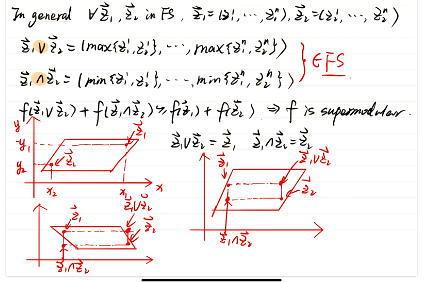 In general ∀ z⃗₁, z⃗₂ in FS, z⃗₁ = (z₁¹, ⋯, z₁ⁿ), z⃗₂ = (z₂¹, ⋯, z₂ⁿ)
z⃗₁ ∨ z⃗₂ = (max{z₁¹, z₂¹}, ⋯, max{z₁ⁿ, z₂ⁿ})
z⃗₁ ∧ z⃗₂ = (min{z₁¹, z₂¹}, ⋯, min{z₁ⁿ, z₂ⁿ})
} ∈ FS
f(z⃗₁ ∨ z⃗₂) + f(z⃗₁ ∧ z⃗₂) ≥ f(z⃗₁) + f(z⃗₂) ⇒ f is supermodular.
z⃗₁ ∨ z⃗₂ = z⃗₁ z⃗₁ ∧ z⃗₂ = z⃗₂
y
y₁
y₂
z⃗₁
z⃗₂
x₂
x₁
x
z⃗₁
z⃗₁ ∨ z⃗₂
z⃗₂
z⃗₁ ∧ z⃗₂
z⃗₁
z⃗₁ ∨ z⃗₂
z⃗₂
z⃗₁ ∧ z⃗₂